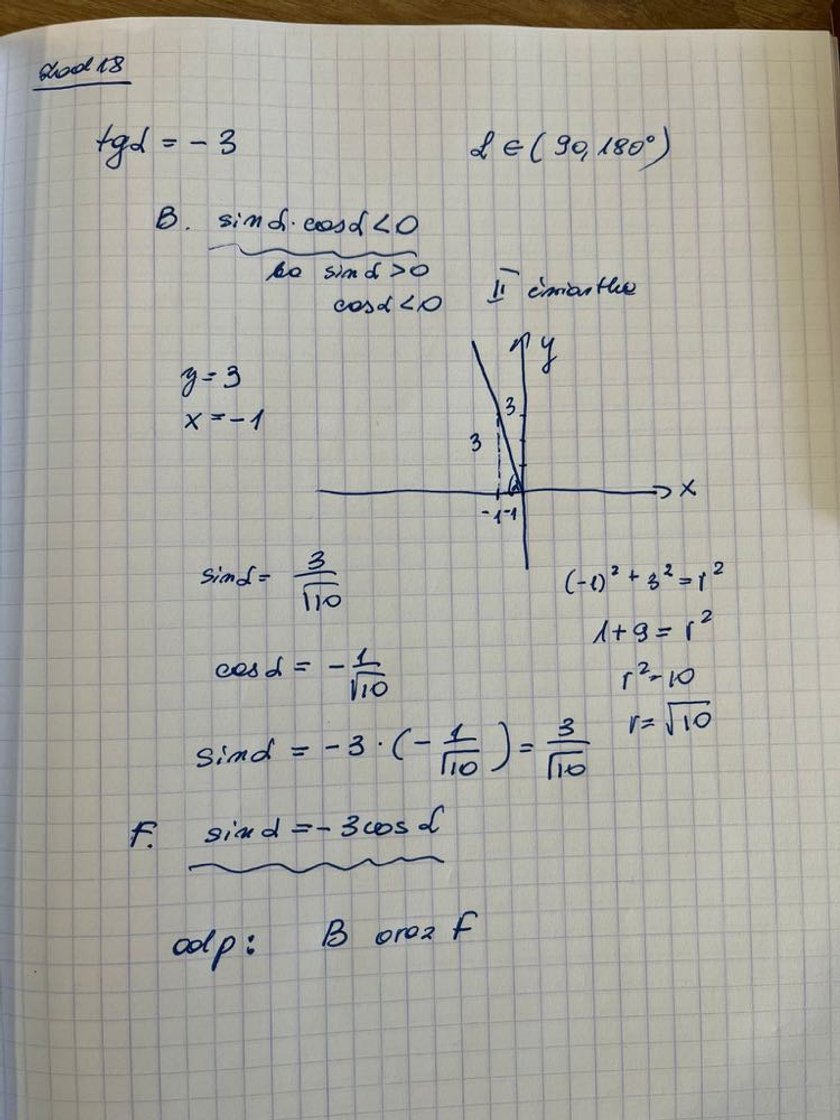 Zad 18
tgα = -3    α ∈ (90, 180°)
B. sinα · cosα < 0
bo sinα > 0
cosα < 0    II ćwiartka
y = 3
x = -1
y
3
3
α
x
-1 -1
sinα = 3/√10
(-1)² + 3² = r²
1 + 9 = r²
cosα = -1/√10
r² = 10
r = √10
sinα = -3 · (-1/√10) = 3/√10
F. sinα = -3cosα
odp: B oraz F